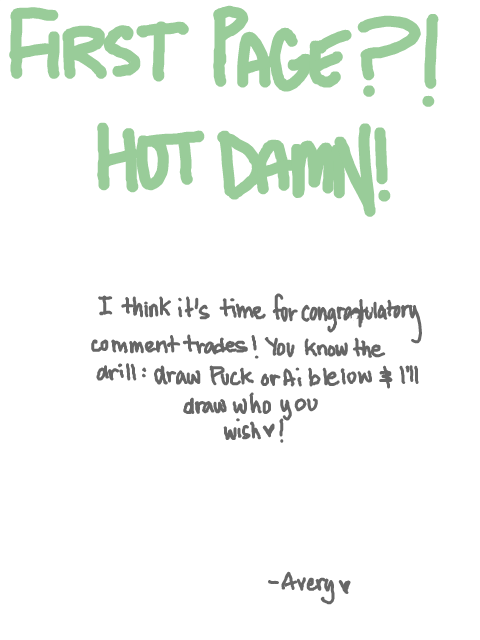 FIRST PAGE?!
HOT DAMN!
I think it's time for congratulatory
comment trades! You know the
drill: draw Puck or Ai blelow & I'll
draw who you
wish♥!
-Avery♥